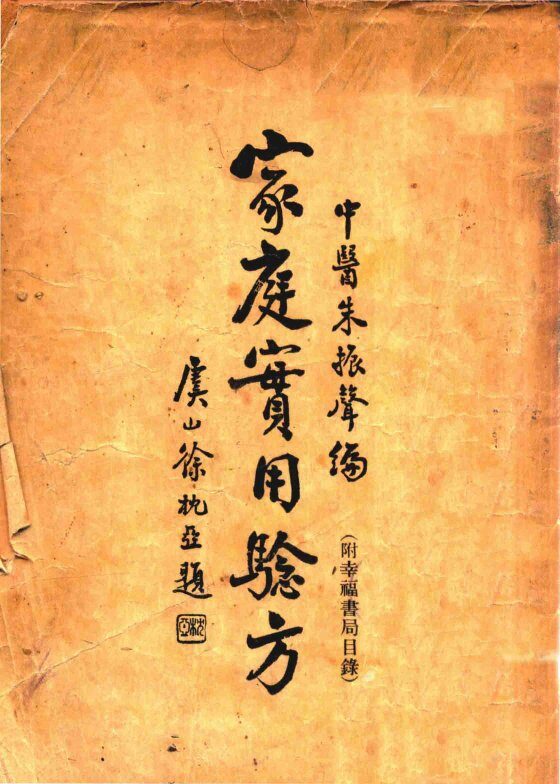 中醫朱振聲編
(附幸福書局目錄)
家庭實用驗方
虞山徐枕亞題
枕亞